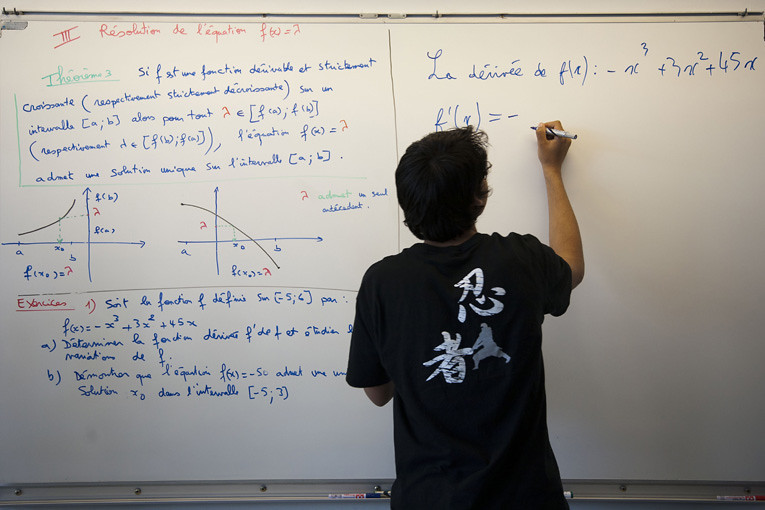 III Résolution de l'équation f(x) = λ
Théorème 3 Si f est une fonction dérivable et strictement
croissante (respectivement strictement décroissante) sur un
intervalle [a;b] alors pour tout λ ∈ [f(a); f(b)]
(respectivement λ ∈ [f(b); f(a)]), l'équation f(x) = λ
admet une solution unique sur l'intervalle [a;b].
f(b)
λ
f(a)
a x₀ b
f(x₀) = λ
λ
a x₀ b
f(x₀) = λ
λ admet un seul
antécédent.
Exercices 1) Soit la fonction f définie sur [-5;6] par :
f(x) = -x³ + 3x² + 45x
a) Déterminer la fonction dérivée f' de f et étudier
variations de f.
b) Démontrer que l'équation f(x) = -50 admet une
solution x₀ dans l'intervalle [-5;3]
La dérivée de f(x) : -x³ + 3x² + 45x
f'(x) = -
忍
者